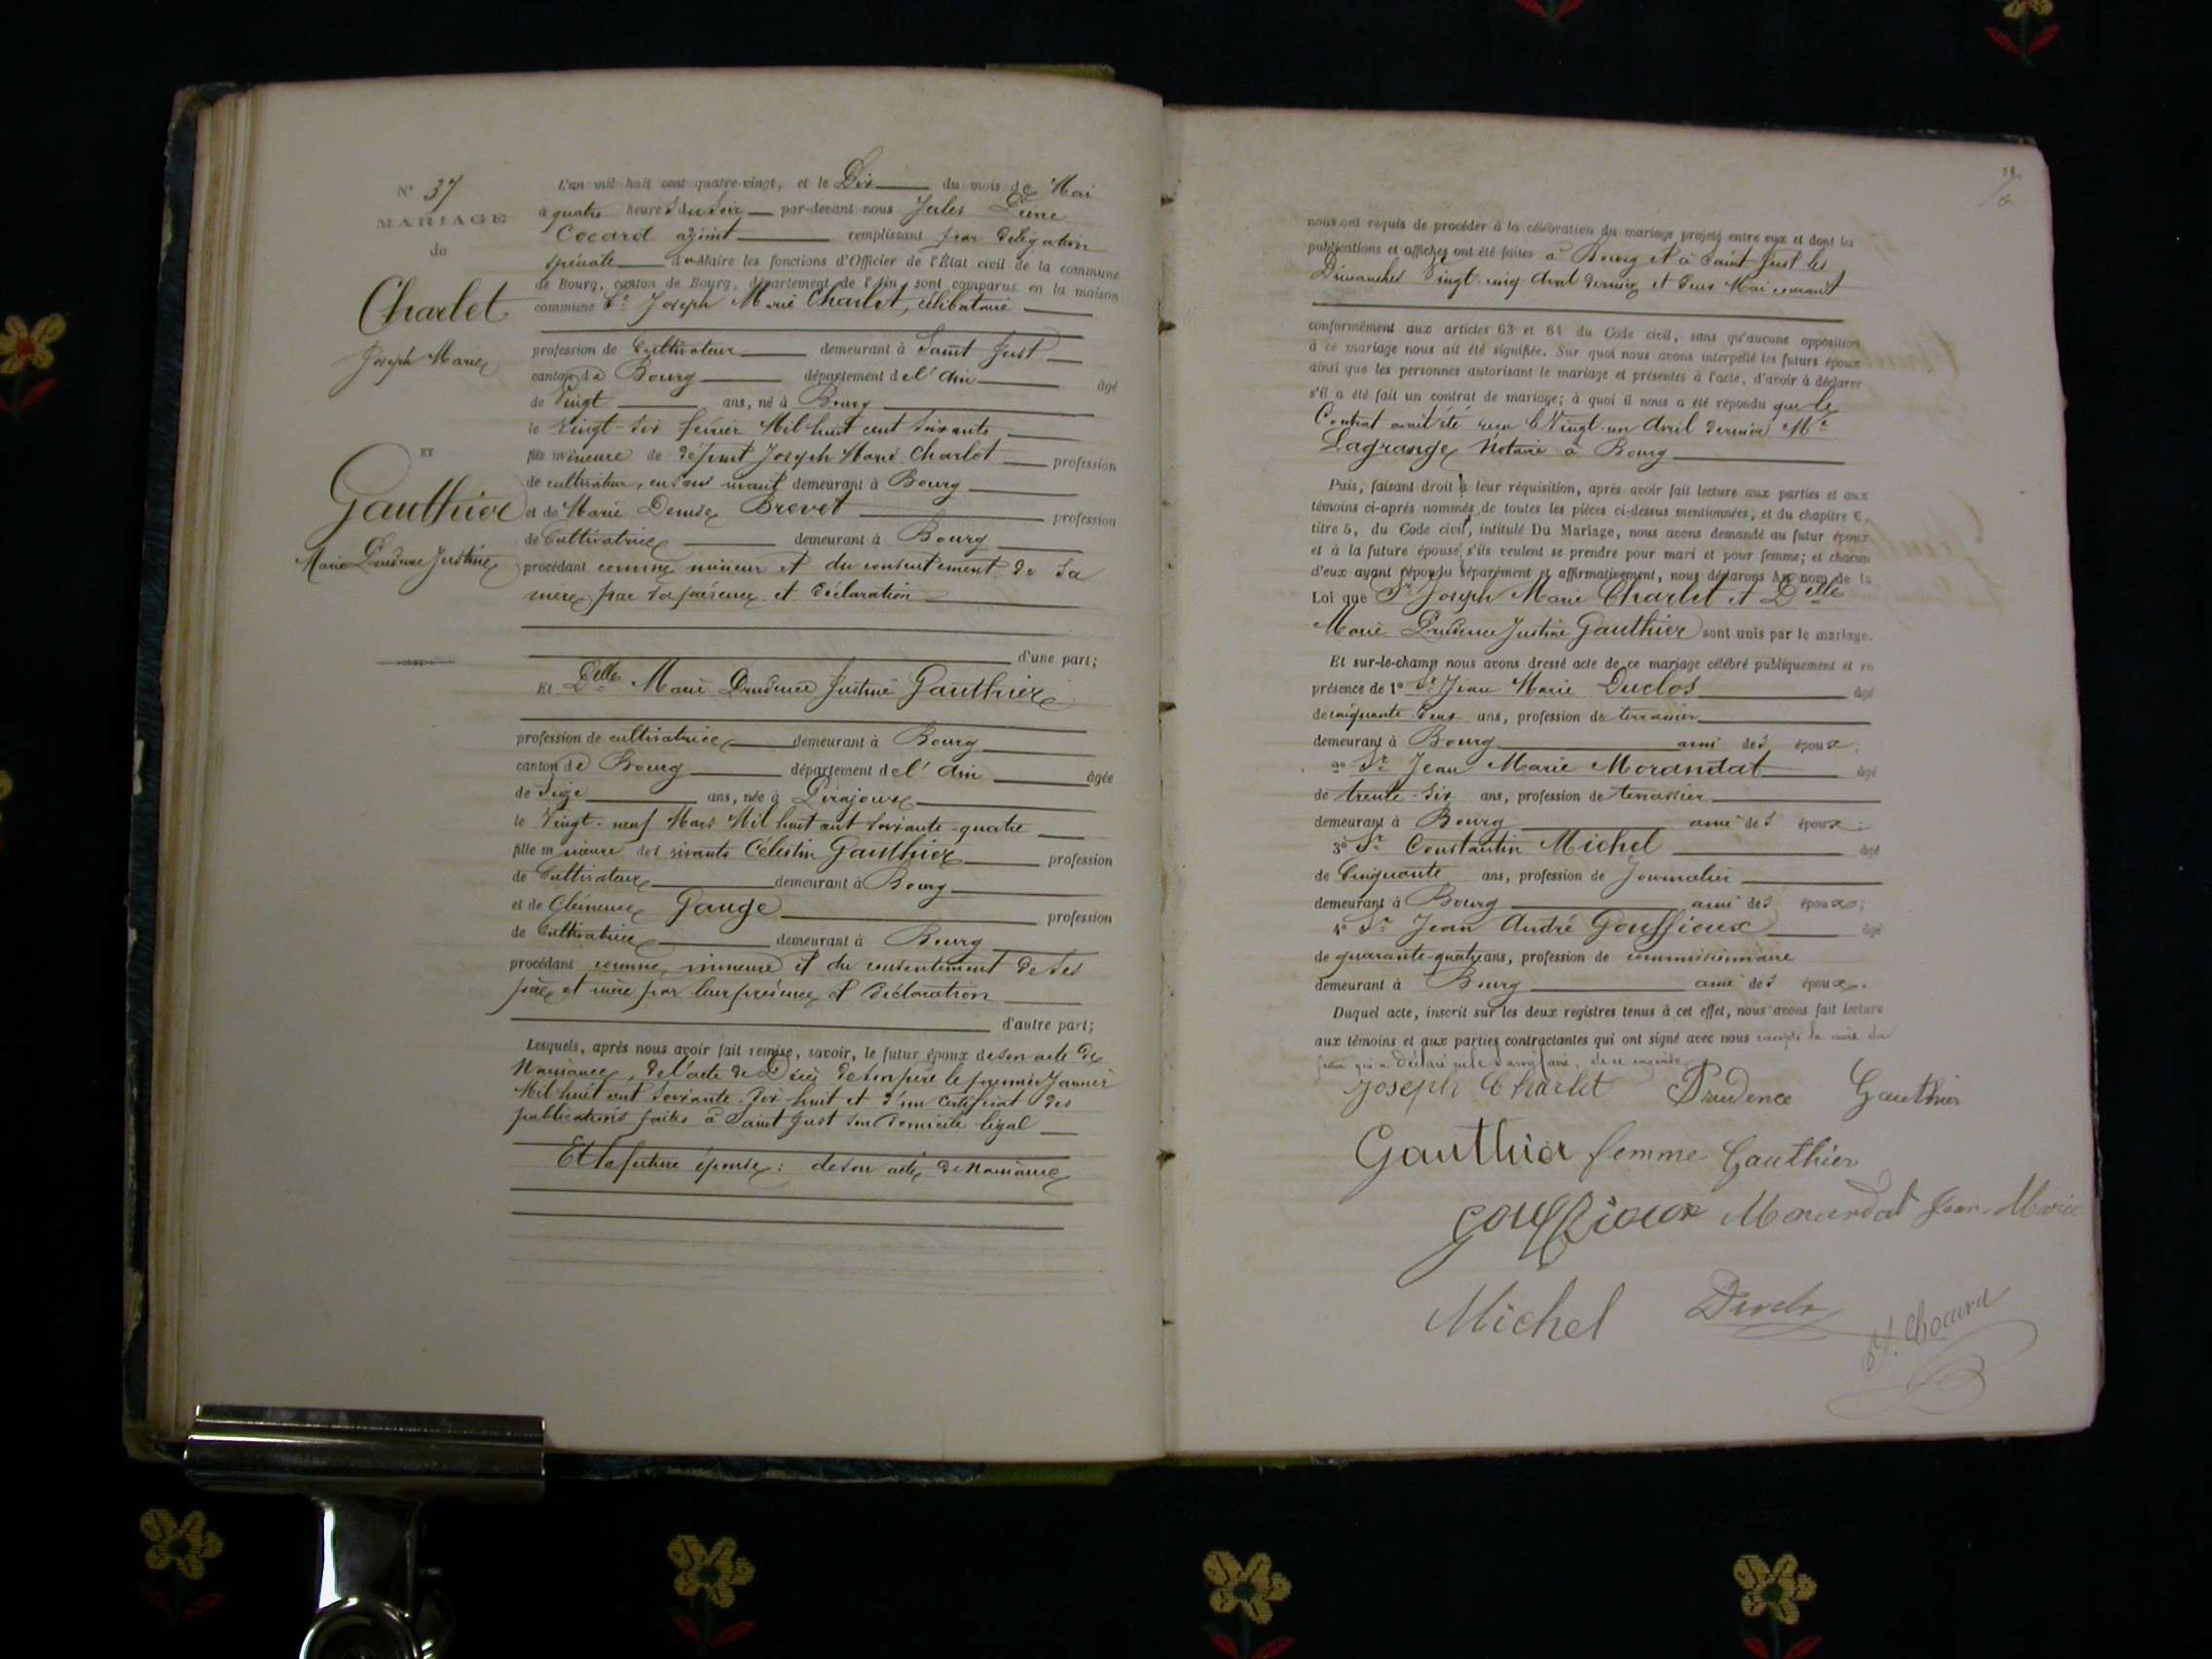 N° 37
MARIAGE
de
Charlet
Joseph Marie
ET
Gauthier
Marie Prudence Justine
L'an mil huit cent quatre-vingt, et le Dix du mois de Mai
à quatre heures du soir par-devant nous Jules
Cocard adjoint remplissant par délégation
spéciale du Maire les fonctions d'Officier de l'État civil de la commune
de Bourg, canton de Bourg, département de l'Ain, sont comparus en la maison
commune Sr Joseph Marie Charlet, célibataire
profession de Cultivateur demeurant à Saint Just
canton de Bourg département de l'Ain âgé
de Vingt ans, né à Bourg
le vingt-six février Mil huit cent soixante
fils mineure de défunt Joseph Marie Charlet profession
de cultivateur, en son vivant demeurant à Bourg
et de Marie Denise Brevet profession
de Cultivatrice demeurant à Bourg
procédant comme mineur et du consentement de sa
mère par sa présence et déclaration
d'une part;
Et Delle Marie Prudence Justine Gauthier
profession de cultivatrice demeurant à Bourg
canton de Bourg département de l'Ain âgée
de Seize ans, née à Pirajoux
le Vingt-neuf Mars Mil huit cent soixante-quatre
fille mineure des vivants Célestin Gauthier profession
de Cultivateur demeurant à Bourg
et de Clémence Gauge profession
de Cultivatrice demeurant à Bourg
procédant comme mineure et du consentement de ses
père et mère par leur présence et déclaration
d'autre part;
Lesquels, après nous avoir fait remise, savoir, le futur époux de son acte de
Naissance, de l'acte de Décès de son père le premier Janvier
Mil huit cent soixante-dix-huit et d'un certificat des
publications faites à Saint Just son domicile légal
Et la future épouse: de son acte de Naissance
nous ont requis de procéder à la célébration du mariage projeté entre eux et dont les
publications et affiches ont été faites à Bourg et à Saint Just les
Dimanches Vingt-cinq Avril dernier et deux Mai courant
conformément aux articles 63 et 64 du Code civil, sans qu'aucune opposition
à ce mariage nous ait été signifiée. Sur quoi nous avons interpellé les futurs époux
ainsi que les personnes autorisant le mariage et présentes à l'acte, d'avoir à déclarer
s'il a été fait un contrat de mariage; à quoi il nous a été répondu que le
Contrat avait été reçu le Vingt-un Avril dernier Me
Lagrange Notaire à Bourg
Puis, faisant droit à leur réquisition, après avoir fait lecture aux parties et aux
témoins ci-après nommés de toutes les pièces ci-dessus mentionnées, et du chapitre 6,
titre 5, du Code civil, intitulé Du Mariage, nous avons demandé au futur époux
et à la future épouse s'ils veulent se prendre pour mari et pour femme; et chacun
d'eux ayant répondu séparément et affirmativement, nous déclarons Au nom de la
Loi que Sr Joseph Marie Charlet et Delle
Marie Prudence Justine Gauthier sont unis par le mariage.
Et sur-le-champ nous avons dressé acte de ce mariage célébré publiquement et en
présence de 1° Sr Jean Marie Duclos âgé
de cinquante-deux ans, profession de terrassier
demeurant à Bourg ami des époux;
2° Sr Jean Marie Morandat âgé
de trente-six ans, profession de terrassier
demeurant à Bourg ami des époux;
3° Sr Constantin Michel âgé
de Cinquante ans, profession de Journalier
demeurant à Bourg ami des époux;
4° Sr Jean André Gouffioux âgé
de quarante-quatre ans, profession de commissionnaire
demeurant à Bourg ami des époux.
Duquel acte, inscrit sur les deux registres tenus à cet effet, nous avons fait lecture
aux témoins et aux parties contractantes qui ont signé avec nous excepté la mère du
futur qui a déclaré ne le savoir faire, de ce enquise
Joseph Charlet Prudence Gauthier
Gauthier femme Gauthier
Gouffioux Morandat Jean-Marie
Michel Duclos J. Cocard